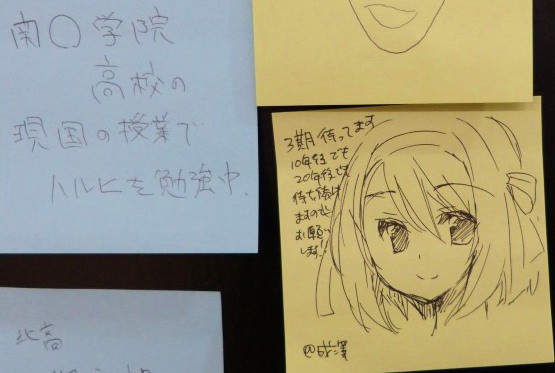 南〇学院
高校の
現国の授業で
ハルヒを勉強中.
3期待ってます
10年後でも
20年後でも
待ち続け
ますので
お願い
します!!
北高